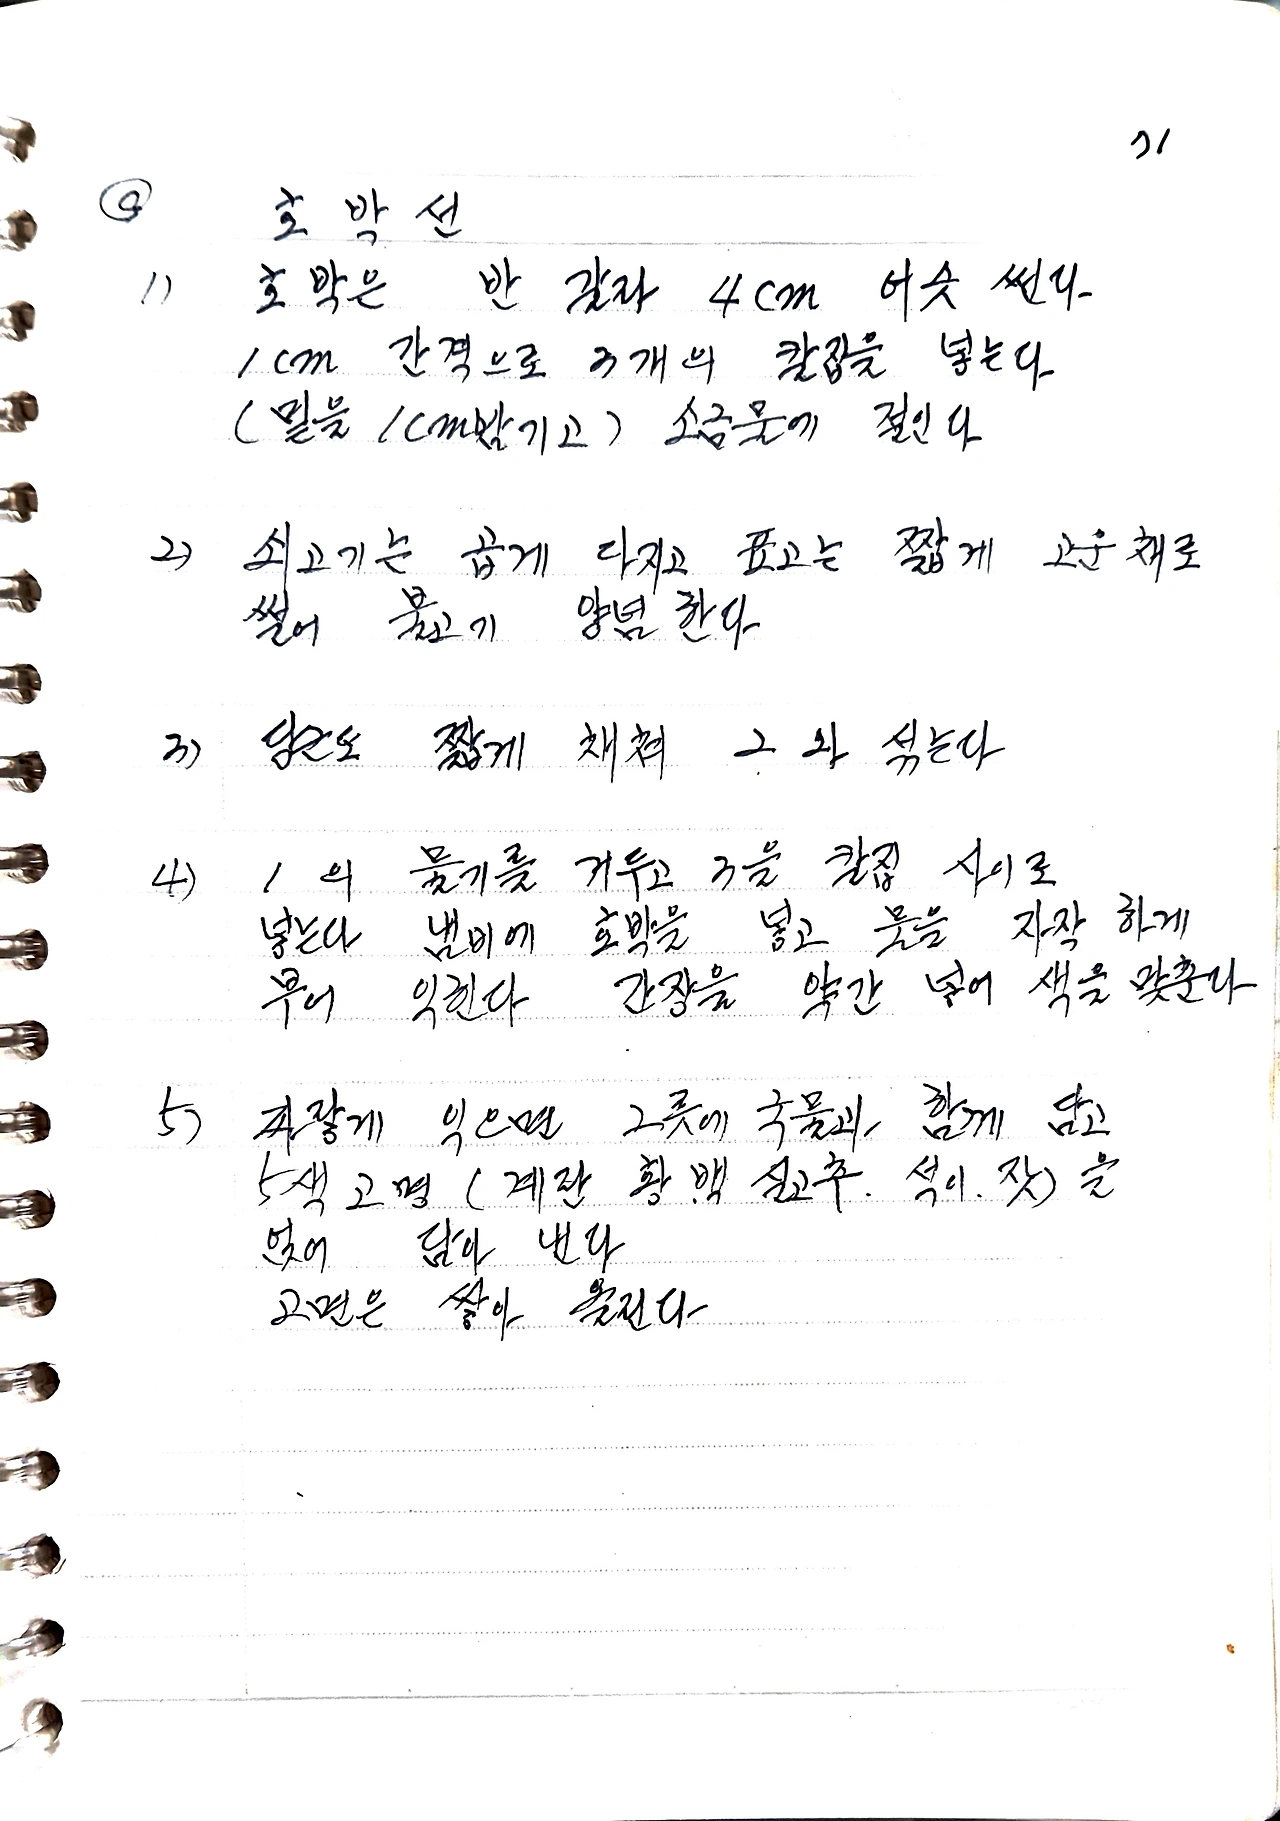 71
호박선
1) 호박은 반 갈라 4cm 어슷 썬다.
1cm 간격으로 3개의 칼집을 넣는다
(밑을 1cm남기고) 소금물에 절인다
2) 쇠고기는 곱게 다지고 표고는 짧게 고운채로
썰어 불고기 양념한다
3) 당근도 짧게 채쳐 2와 섞는다
4) 1의 물기를 거두고 3을 칼집 사이로
넣는다 냄비에 호박을 넣고 물을 자작하게
부어 익힌다 간장을 약간 넣어 색을 맞춘다
5) 파랗게 익으면 그릇에 국물과 함께 담고
5색 고명 (계란 황.백 실고추. 석이. 잣)을
얹어 담아 낸다
고면은 쌓아 올린다